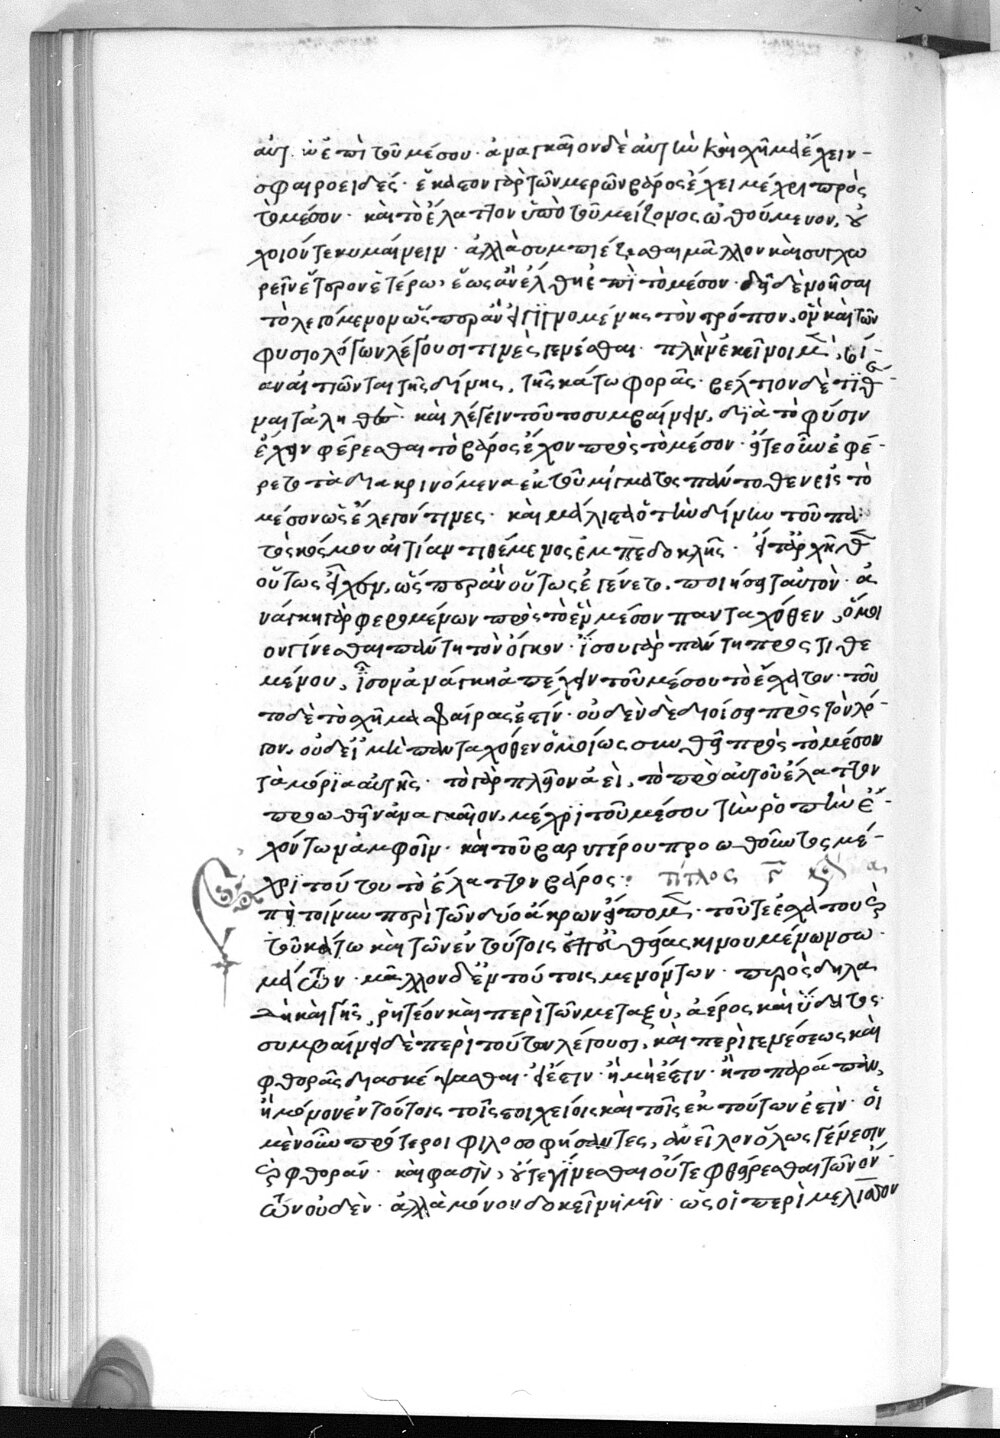 αὐτ. ἢ ἐπὶ τοῦ μέσου· ἀναγκαῖον δὲ αὐτὴν καὶ σχῆμα ἔχειν
σφαιροειδές· ἕκαστον γὰρ τῶν μερῶν βάρος ἔχει μέχρι πρὸς
τὸ μέσον· καὶ τὸ ἔλαττον ὑπὸ τοῦ μείζονος ὠθούμενον, οὐ
χοιόν τε κυμαίνειν· ἀλλὰ συμπιέζεσθαι μᾶλλον καὶ συγχω
ρεῖν ἕτερον ἑτέρω, ἕως ἂν ἔλθη ἐπὶ τὸ μέσον· δεῖ δὲ νοῆσαι
τὸ λεγόμενον ὥσπερ ἂν εἰ γιγνομένης τὸν τρόπον, ὃν καὶ τῶν
φυσιολόγων λέγουσι τινὲς γενέσθαι· πλὴν ἐκεῖνοι μὲν, βί-
αν αἰτιῶνται τῆς δίνης, τῆς κάτω φορᾶς· βέλτιον δὲ τιθ-
ναι τἀληθῆ· καὶ λέγειν τοῦτο συμβαίνειν, διὰ τὸ φύσιν
ἔχειν φέρεσθαι τὸ βάρος ἔχον πρὸς τὸ μέσον· εἴτε οὖν ἐφέ-
ρετο τὰ διακρινόμενα ἐκ τοῦ μίγματος πάντοθεν εἰς τὸ
μέσον ὡς ἔλεγον τινες· καὶ μάλιστα ὁ τὴν δίνην τοῦ πα
τὸς κόσμου αἰτίαν τιθέμενος ἐμπεδοκλῆς· εἴτ' ἀρχῆθεν
οὕτως εἶχεν, ὥσπερ ἂν οὕτως ἐγένετο, ποιήσει ταυτὸν· ἀ
νάγκη γὰρ φερομένων πρὸς τὸ ἓν μέσον πανταχόθεν, ὅμοι
ον γίνεσθαι πάντη τὸν ὄγκον· ἴσου γὰρ πάντη προστιθε
μένου, ἴσον ἀνάγκη ἀπέχειν τοῦ μέσου τὸ ἔσχατον· τοῦ
το δὲ τὸ σχῆμα σφαίρας ἐστίν· οὐδὲν δὲ διοίσει πρὸς τὸν λό-
γον, οὐδ' εἰ μὴ πανταχόθεν ὁμοίως συνωθεῖ πρὸς τὸ μέσον
τὰ μόρια αὐτῆς· τὸ γὰρ πλεῖον ἀεὶ, τὸ πρὸ αὐτοῦ ἔλαττον
προωθεῖν ἀναγκαῖον, μέχρι τοῦ μέσου τὴν ῥοπὴν ἐ-
χόντων ἀμφοῖν· καὶ τοῦ βαρυτέρου προωθοῦντος μέ-
χρι τούτου τὸ ἔλαττον βάρος: τίτλος γ
πὴ τοίνυν περὶ τῶν δύο ἄκρων εἴπομεν· τοῦ τε ἐσχάτου καὶ
τοῦ κάτω καὶ τῶν ἐν τούτοις ἐπ' εὐθείας κινουμένων σω
μάτων· μᾶλλον δ' ἐν τούτοις μενόντων· πυρὸς δηλα
δὴ καὶ γῆς, ῥητέον καὶ περὶ τῶν μεταξὺ, ἀέρος καὶ ὕδατος·
συμβαίνει δὲ περὶ τούτων λέγουσι, καὶ περὶ γενέσεως καὶ
φθορᾶς διασκέψασθαι· εἰ ἔστιν· ἢ μὴ ἔστιν· ἤτοι παράπαν,
ἢ μόνον ἐν τούτοις τοῖς στοιχείοις καὶ τοῖς ἐκ τούτων ἐστὶν· οἱ
μὲν οὖν πρότεροι φιλοσοφήσαντες, ἀνεῖλον ὅλως γένεσιν
καὶ φθοράν· καὶ φασὶν, οὔτε γίνεσθαι οὔτε φθείρεσθαι τῶν ὄν-
των οὐδὲν· ἀλλὰ μόνον δοκεῖν ἡμῖν· ὡς οἱ περὶ μέλισσον